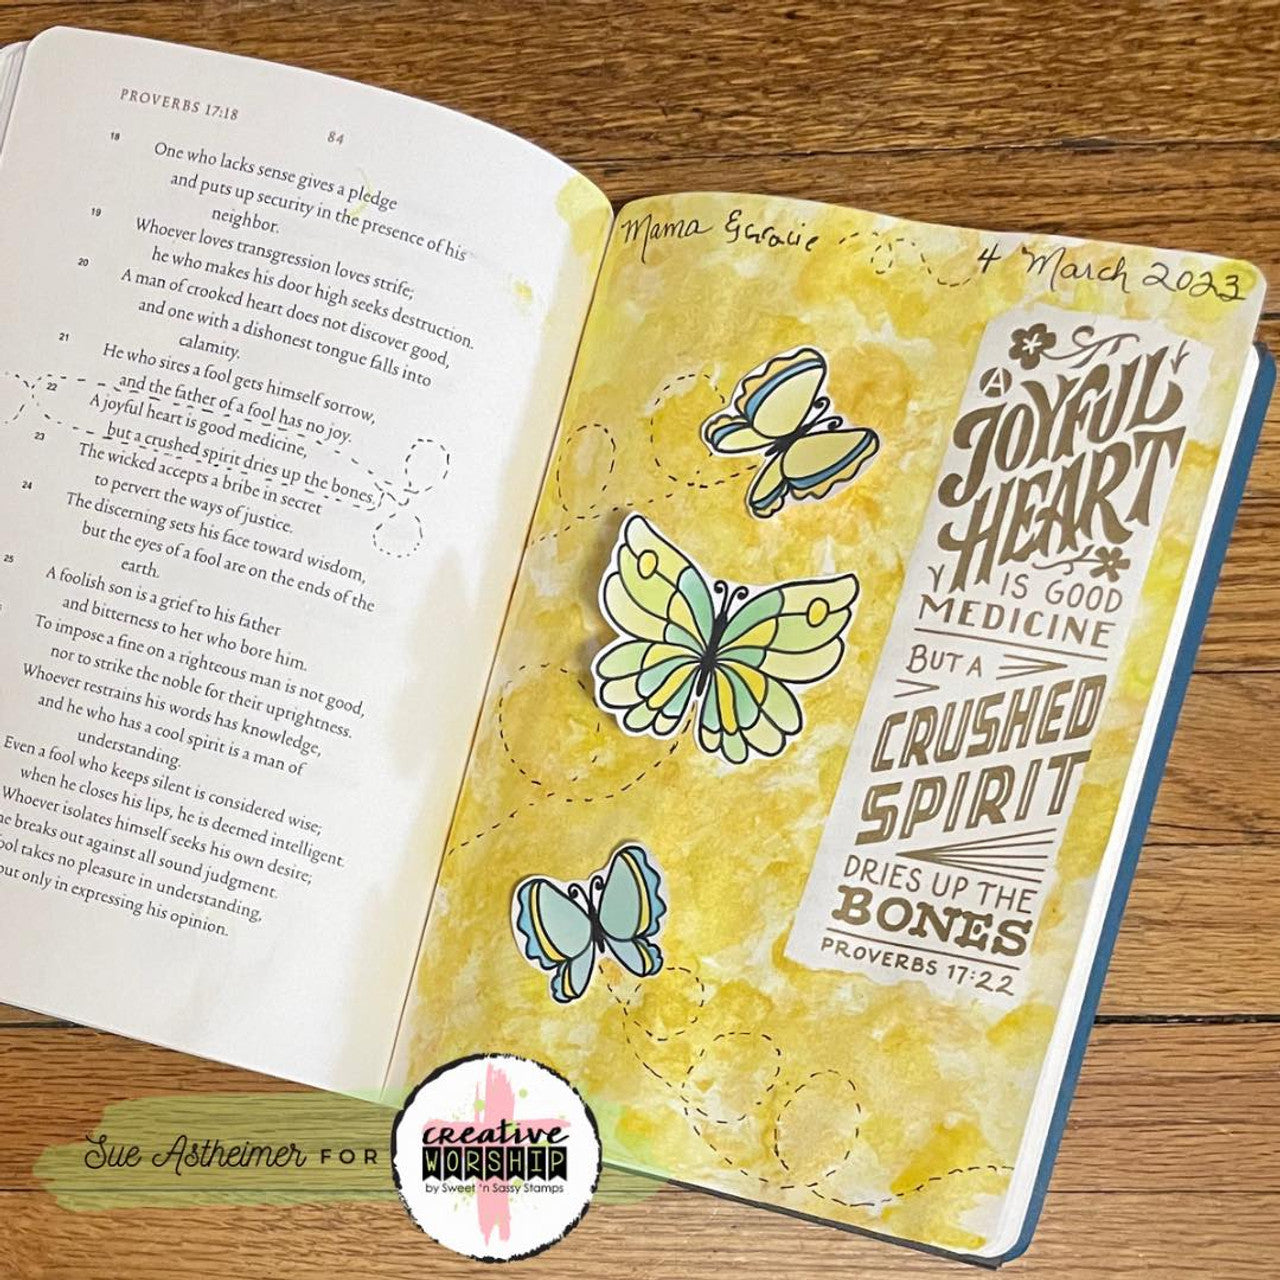 PROVERBS 17:18
84
18 One who lacks sense gives a pledge
and puts up security in the presence of his
neighbor.
19 Whoever loves transgression loves strife;
he who makes his door high seeks destruction.
20 A man of crooked heart does not discover good,
and one with a dishonest tongue falls into
calamity.
21 He who sires a fool gets himself sorrow,
and the father of a fool has no joy.
22 A joyful heart is good medicine,
but a crushed spirit dries up the bones.
23 The wicked accepts a bribe in secret
to pervert the ways of justice.
24 The discerning sets his face toward wisdom,
but the eyes of a fool are on the ends of the
earth.
25 A foolish son is a grief to his father
and bitterness to her who bore him.
To impose a fine on a righteous man is not good,
nor to strike the noble for their uprightness.
Whoever restrains his words has knowledge,
and he who has a cool spirit is a man of
understanding.
Even a fool who keeps silent is considered wise;
when he closes his lips, he is deemed intelligent.
Whoever isolates himself seeks his own desire;
he breaks out against all sound judgment.
ool takes no pleasure in understanding,
but only in expressing his opinion.
Mama & Gracie
4 March 2023
A
JOYFUL
HEART
IS GOOD
MEDICINE
BUT A
CRUSHED
SPIRIT
DRIES UP THE
BONES
PROVERBS 17:22
Sue Astheimer FOR
creative
WORSHIP
by Sweet 'n Sassy Stamps